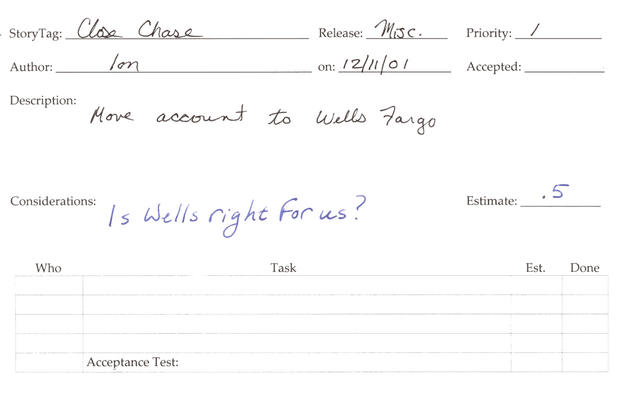 StoryTag: Close Chase Release: Misc. Priority: 1
Author: Ion on: 12/11/01 Accepted:
Description:
Move account to Wells Fargo
Considerations: Is Wells right for us? Estimate: .5
Who Task Est. Done
Acceptance Test: